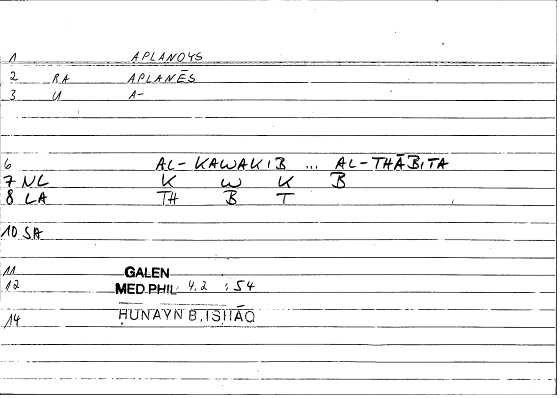 1 APLANOYS
2 RA APLANĒS
3 U A-
6 AL-KAWAKIB ... AL-THĀBITA
7 NL K W K B
8 LA TH B T
10 SA
11 GALEN
12 MED.PHIL 4.2 :54
14 ḤUNAYN B.ISḤĀQ